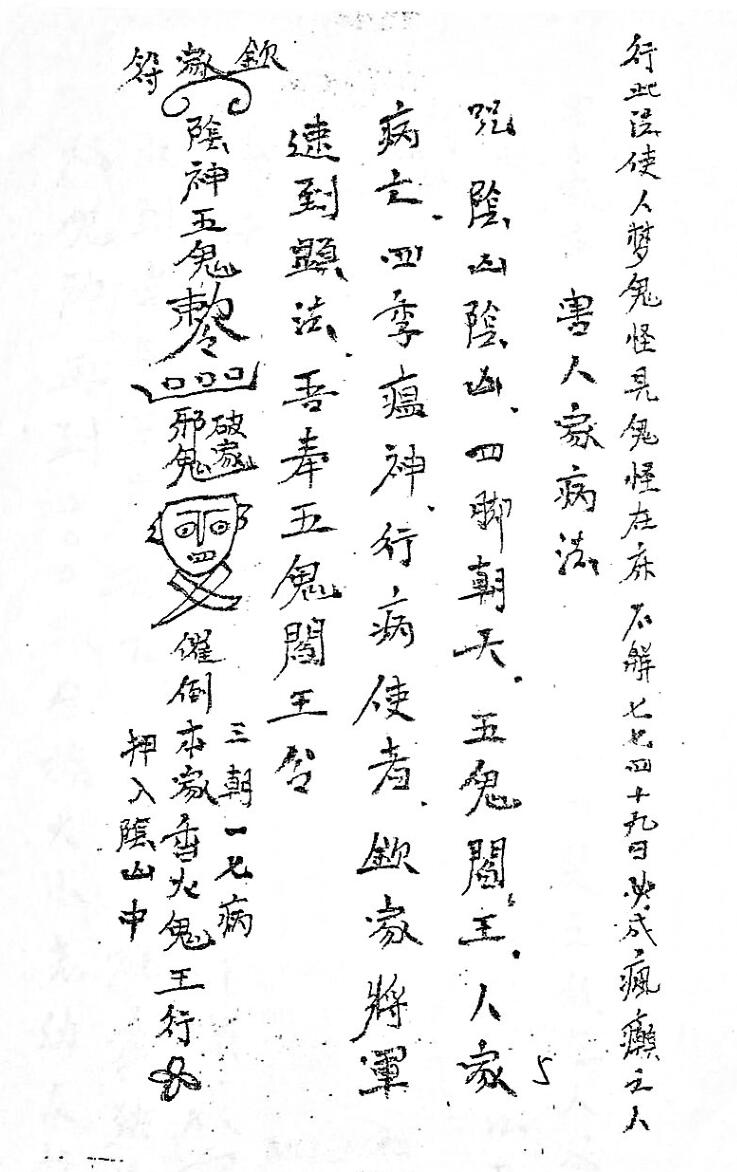 行此法使人梦鬼怪見鬼怪在床不解七七四十九日必成瘋癲之人
害人家病法
咒 陰山陰山四脚朝天五鬼閻王人家
病亡四季瘟神行病使者欽家將軍
速到顕法吾奉五鬼閻王令
欽家符
陰神五鬼
敕令
口口口
破家
邪鬼
四
催倒本家香火鬼王行
三朝一七病
押入陰山中
5